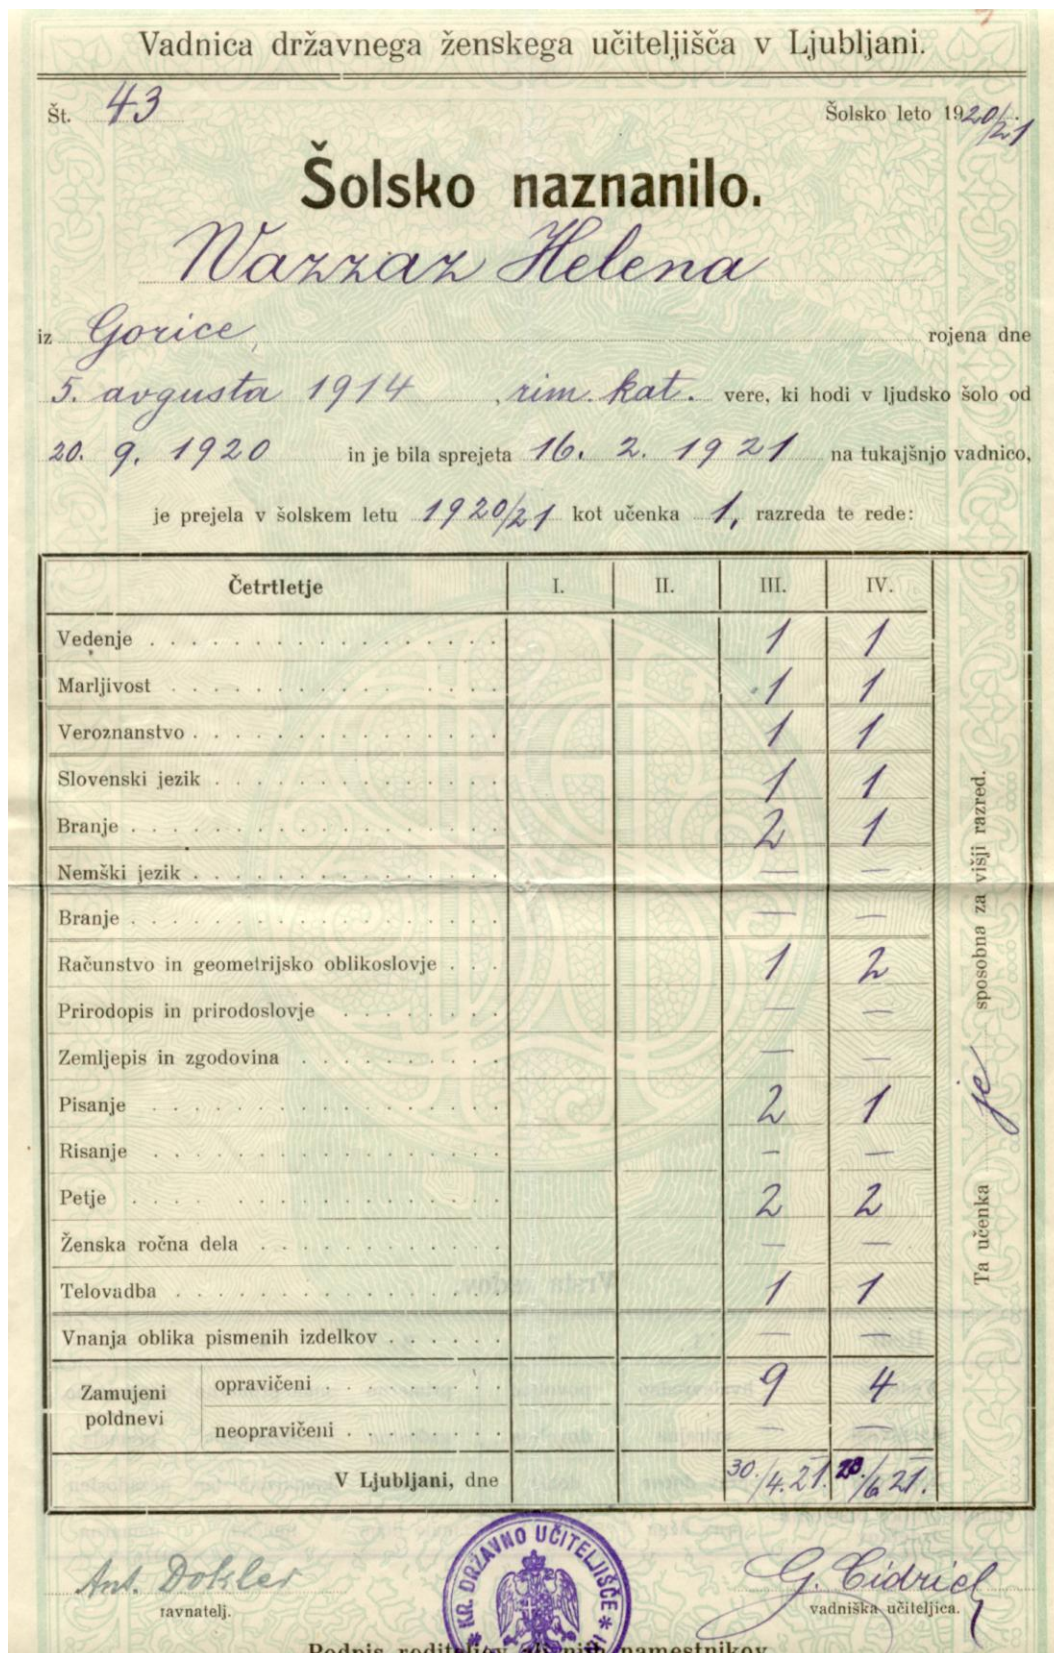 Vadnica državnega ženskega učiteljišča v Ljubljani.
Št. 43 Šolsko leto 1920/21
Šolsko naznanilo.
Wazzaz Helena
iz Gorice, rojena dne
5. avgusta 1914, rim. kat. vere, ki hodi v ljudsko šolo od
20. 9. 1920 in je bila sprejeta 16. 2. 1921 na tukajšnjo vadnico,
je prejela v šolskem letu 1920/21 kot učenka 1. razreda te rede:
Četrtletje I. II. III. IV.
Vedenje 1 1
Marljivost 1 1
Veroznanstvo 1 1
Slovenski jezik 1 1
Branje 2 1
Nemški jezik — —
Branje — —
Računstvo in geometrijsko oblikoslovje 1 2
Prirodopis in prirodoslovje — —
Zemljepis in zgodovina — —
Pisanje 2 1
Risanje — —
Petje 2 2
Ženska ročna dela — —
Telovadba 1 1
Vnanja oblika pismenih izdelkov — —
Zamujeni poldnevi
opravičeni 9 4
neopravičeni — —
V Ljubljani, dne 30./4.21. 28./6 21.
Ta učenka je sposobna za višji razred.
Ant. Dokler
ravnatelj.
KR. DRŽAVNO UČITELJIŠČE
G. Cidrich
vadniška učiteljica.
Podpis roditeljev namestnikov